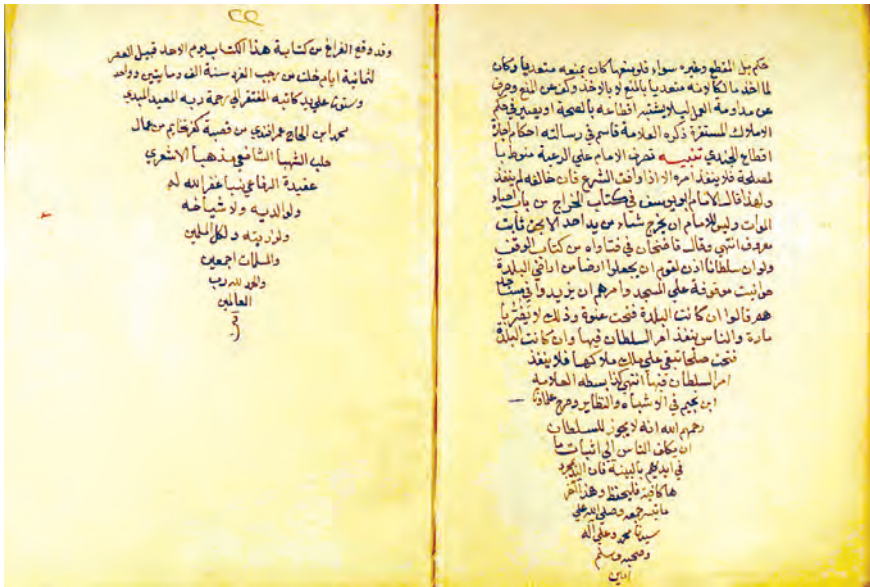 حكم بل المقطع وغيره سواء فلو منعها كان بمنعه متعديا وكان
لما اخذ مالكا لونه متعديا بالمنع لا بالاخذ وكف عن المنع وصرف
عن مداومة العمل ليلا يشتبه اقطاعه بالصحة او يصير في حكم
الاملاك المستقرة ذكره العلامة قاسم في رسالته احكام اجارة
اقطاع الجندي تنبيه تصرف الامام علي الرعية منوط با
لمصلحة فلا ينفذ امره الا اذا وافق الشرع فان خالفه لم ينفذ
ولهذا قال الامام ابو يوسف في كتاب الخراج من باب احياء
الموات وليس للامام ان يخرج شياء من يد احد الا بحق ثابت
معروف انتهي وقال قاضيخان في فتاواه من كتاب الوقف
ولو ان سلطانا اذن لقوم ان يجعلوا ارضا من اراضي البلدة
حوانيت موقوفة علي المسجد وامرهم ان يزيدوا في مساجد
هم قالوا ان كانت البلدة فتحت عنوة وذلك لا يضر با
مارة والناس ينفذ امر السلطان فيها وان كانت البلدة
فتحت صلحا تبقي علي ملك ملاكها فلا ينفذ
امر السلطان فيها انتهي كذا بسطه العلامه
ابن نجيم في الاشباه والنظاير وصرح علماونا
رحمهم الله انه لا يجوز للسلطان
ان يكلف الناس الي اثبات ما
في ايديهم بالبينة فان اليد بمجرد
ها كافية فليحفظ وهذا آخر
ما تيسر جمعه وصلي الله علي
سيدنا محمد وعلي آله
وصحبه وسلم
امين
٢٥
وقد وقع الفراغ من كتابة هذا الكتاب يوم الاحد قبيل العصر
لثمانية ايام خلت من رجب الفرد سنة الف ومايتين وواحد
وستون علي يد كاتبه المفتقر الي رحمة ربه المعيد المبدي
محمد ابن الحاج عمر افندي من قصبة كفرتخاريم من عمال
حلب الشهبا الشافعي مذهبا الاشعري
عقيدة الرفاعي نسبا غفر الله له
ولوالديه ولاشياخه
ولذريته ولكل المسلمين
والمسلمات اجمعين
والحمد لله رب
العالمين